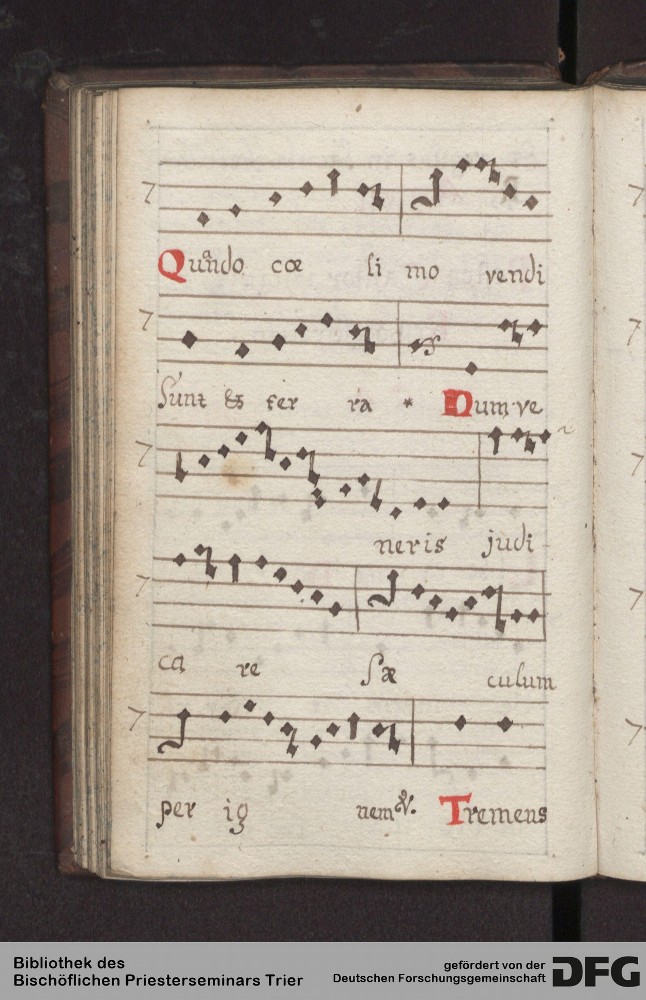 Quãndo cœ li mo vendi
Sunt & ter ra * Dum ve
neris judi
ca re Sæ culum
per ig nem ℣. Tremens
Bibliothek des
Bischöflichen Priesterseminars Trier
gefördert von der
Deutschen Forschungsgemeinschaft
DFG